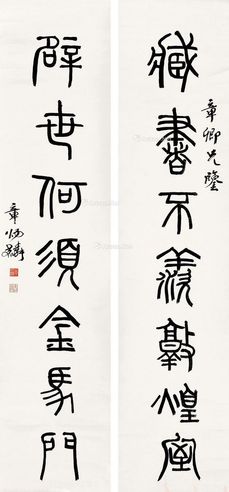 章卿兄鑒
藏書不羨敦煌室
辟世何須金馬門
章炳麟